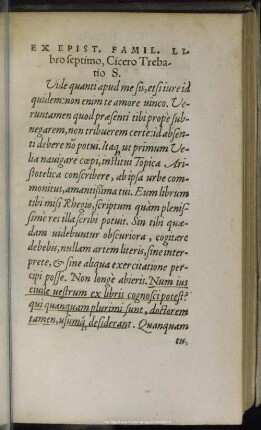 EX EPIST. FAMIL. LI-
bro septimo, Cicero Treba-
tio S.
Vide quanti apud me sis, etsi iure id
quidem: non enim te amore uinco. Ve-
runtamen quod præsenti tibi propè sub-
negarem, non tribuerem certè: id absen-
ti debere nõ potui. Itaq; ut primum Ve-
lia nauigare cœpi, institui Topica Ari-
stotelica conscribere, ab ipsa urbe com-
monitus, amantissima tui. Eum librum
tibi misi Rhegio, scriptum quàm plenis-
simè res illa scribi potuit. Sin tibi quæ-
dam uidebuntur obscuriora, cogitare
debebis, nullam artem literis, sine inter-
prete, & sine aliqua exercitatione per-
cipi posse. Non longè abieris. Num ius
ciuile uestrum ex libris cognosci potest?
qui quanquam plurimi sunt, doctorem
tamen, usumq́; desiderant. Quanquam
tu,